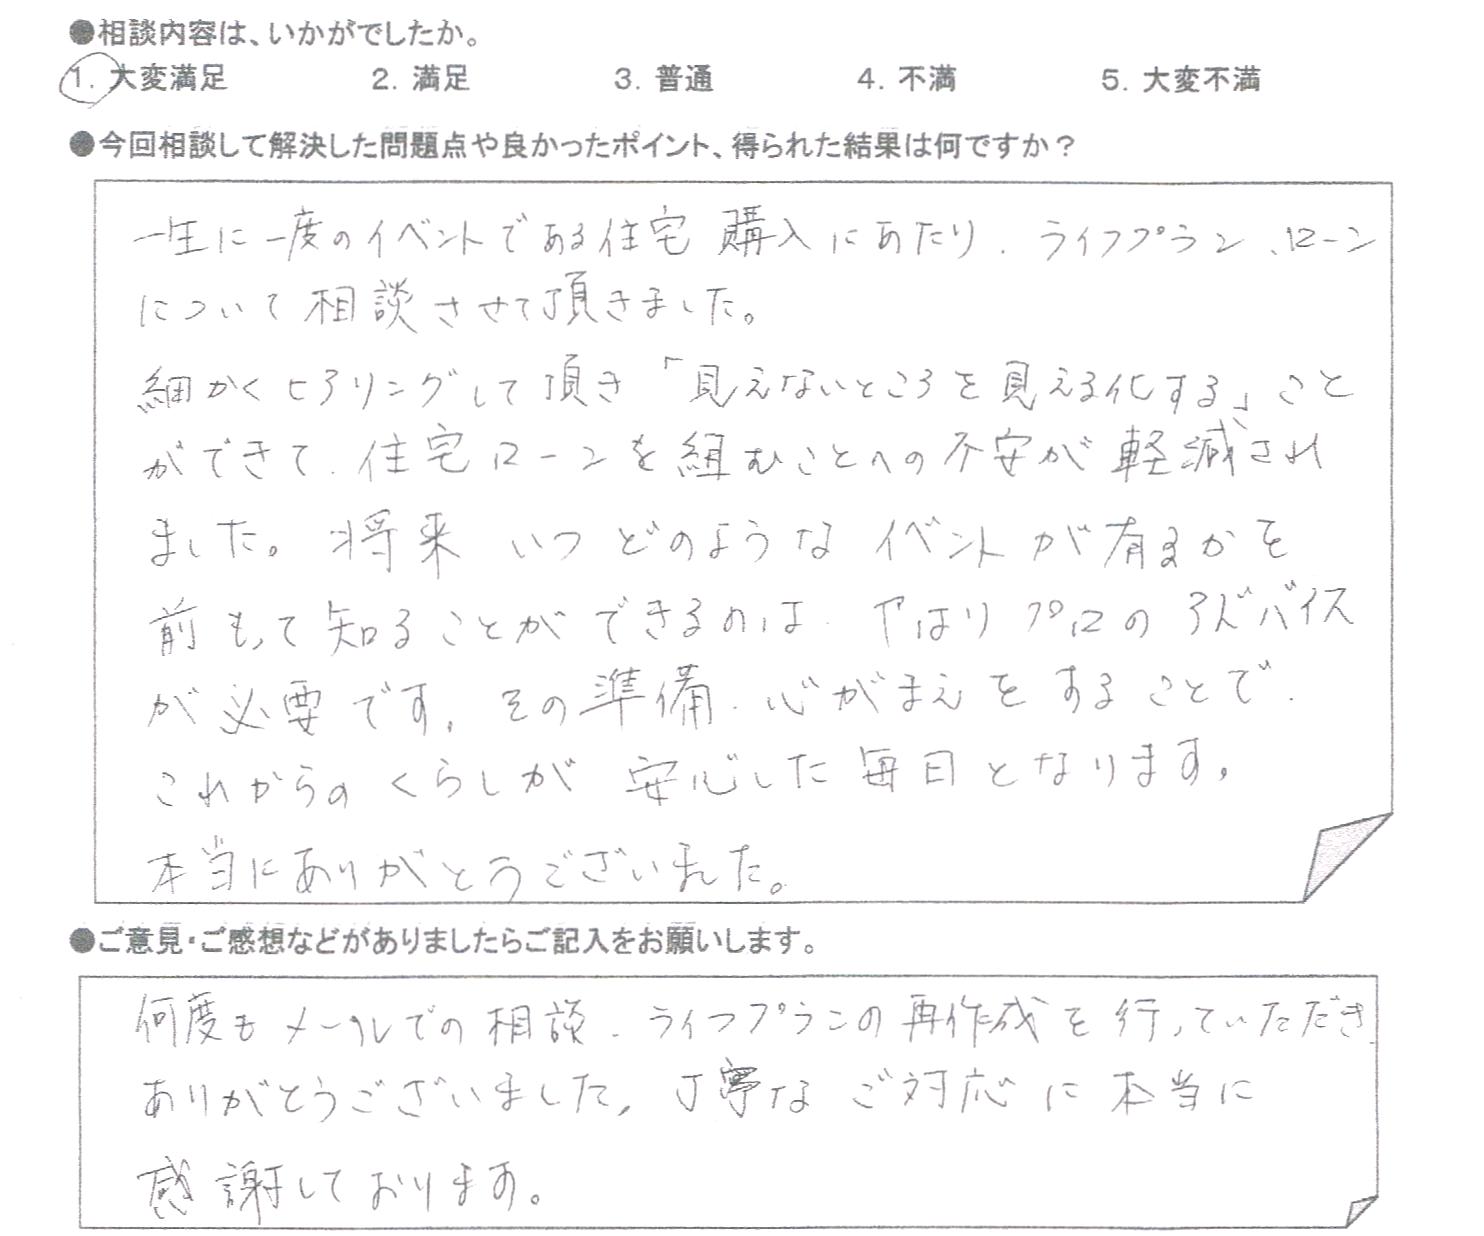 ●相談内容は、いかがでしたか。
1. 大変満足 2. 満足 3. 普通 4. 不満 5. 大変不満
●今回相談して解決した問題点や良かったポイント、得られた結果は何ですか？
一生に一度のイベントである住宅購入にあたり、ライフプラン、ローン
について相談させて頂きました。
細かくヒアリングして頂き「見えないところを見える化する」こと
ができて、住宅ローンを組むことへの不安が軽減され
ました。将来 いつ どのような イベントが有るかを
前もって知ることができるのは、やはりプロのアドバイス
が必要です。その準備、心がまえをすることで、
これからのくらしが 安心した毎日となります。
本当にありがとうございました。
●ご意見・ご感想などがありましたらご記入をお願いします。
何度もメールでの相談、ライフプランの再作成を行っていただき
ありがとうございました。丁寧なご対応に本当に
感謝しております。